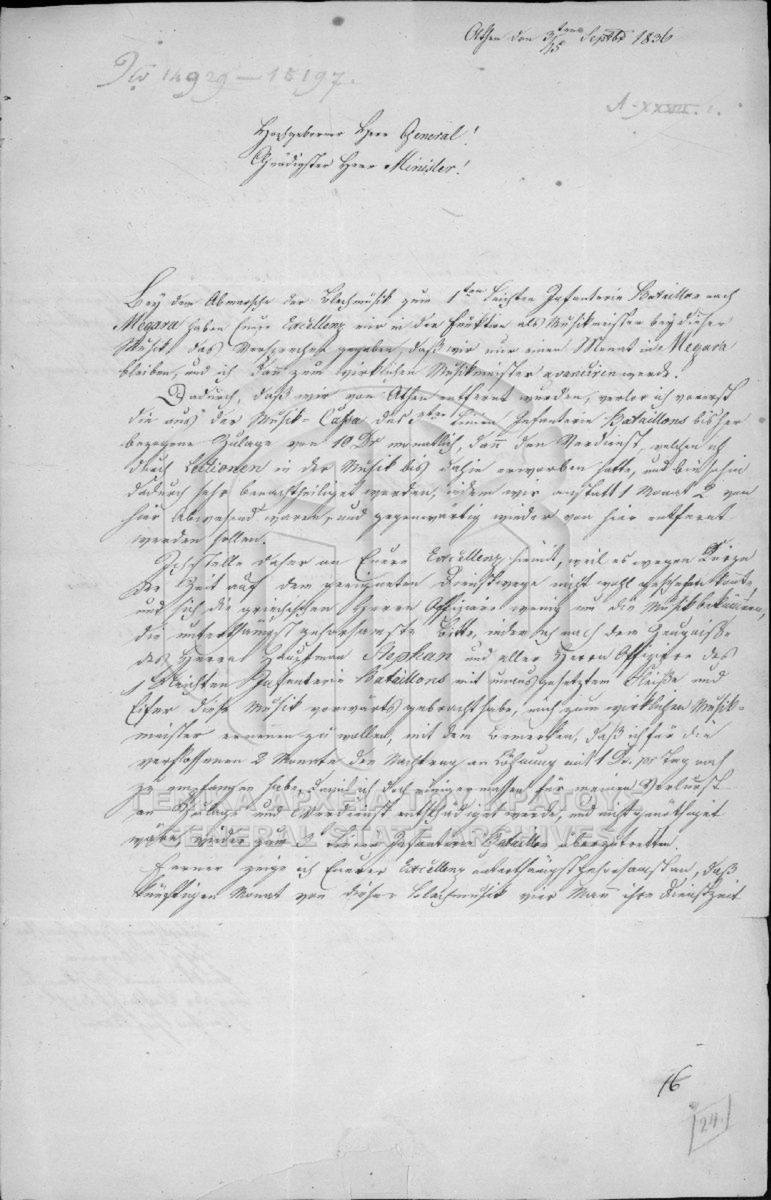 Athen den 3/15ten Septbr 1836
Tit 14929 – 15197.
A. XXVII. 1.
Hochgeborner Herr General!
Gnädigster Herr Minister!
Bey dem Abmarsche der Blechmusik zum 1ten leichten Infanterie Bataillon nach
Megara haben Euere Excellenz mir in der Funktion als Musikmeister bey dieser
Musik das Versprechen gegeben, daß wir nur einen Monat in Megara
bleiben, und ich dan zum wirklichen Musikmeister avanciren werde.
Dadurch, daß wir von Athen entfernt wurden, verlor ich vorerst
die aus der Musik-Cassa des 3ten Linien Infanterie Bataillons bisher
bezogene Zulage von 10 Dr monatlich, dann den Verdienst, welchen ich
durch Lectionen in der Musik bis dahin erworben hatte, und bin sohin
dadurch sehr benachtheiliget worden, indem wir anstatt 1 Monat 2 von
hier abwesend waren, und gegenwärtig wieder von hier entfernt
werden sollen.
Ich stelle daher an Euere Excellenz hiemit, weil es wegen Kürze
der Zeit auf dem geeigneten Dienstwege nicht wohl geschehen konnte,
und sich die griechischen Herren Offiziere wenig um die Musik bekümmern,
die unterthänigst gehorsamste Bitte, indem ich nach dem Zeugniße
des Herren Hauptman und aller Herrn Offiziere des
1 leichten Infanterie Bataillons mit unausgesetztem Fleiße und
Eifer diese Musik vorwärts gebracht habe, mich zum wirklichen Musik-
meister ernennen zu wollen, mit dem Bemerken, daß ich für die
verflossenen 2 Monate den Nachtrag an Löhnung mit 1 Dr. pr Tag noch
zu empfangen habe, damit ich doch einigermassen für meinen Verlurst
an Zulage und Verdienst entschädiget werde, und nicht genöthiget
wäre wieder zum 3 Linien Infanterie Bataillon überzutretten.
Ferner zeige ich Euerer Excellenz unterthänigst gehorsamst an, daß
künftigen Monat von dieser Blechmusik vier Man ihre Dienstzeit
ΓΕΝΙΚΑ ΑΡΧΕΙΑ ΤΟΥ ΚΡΑΤΟΥΣ
GENERAL STATE ARCHIVES
16
24.